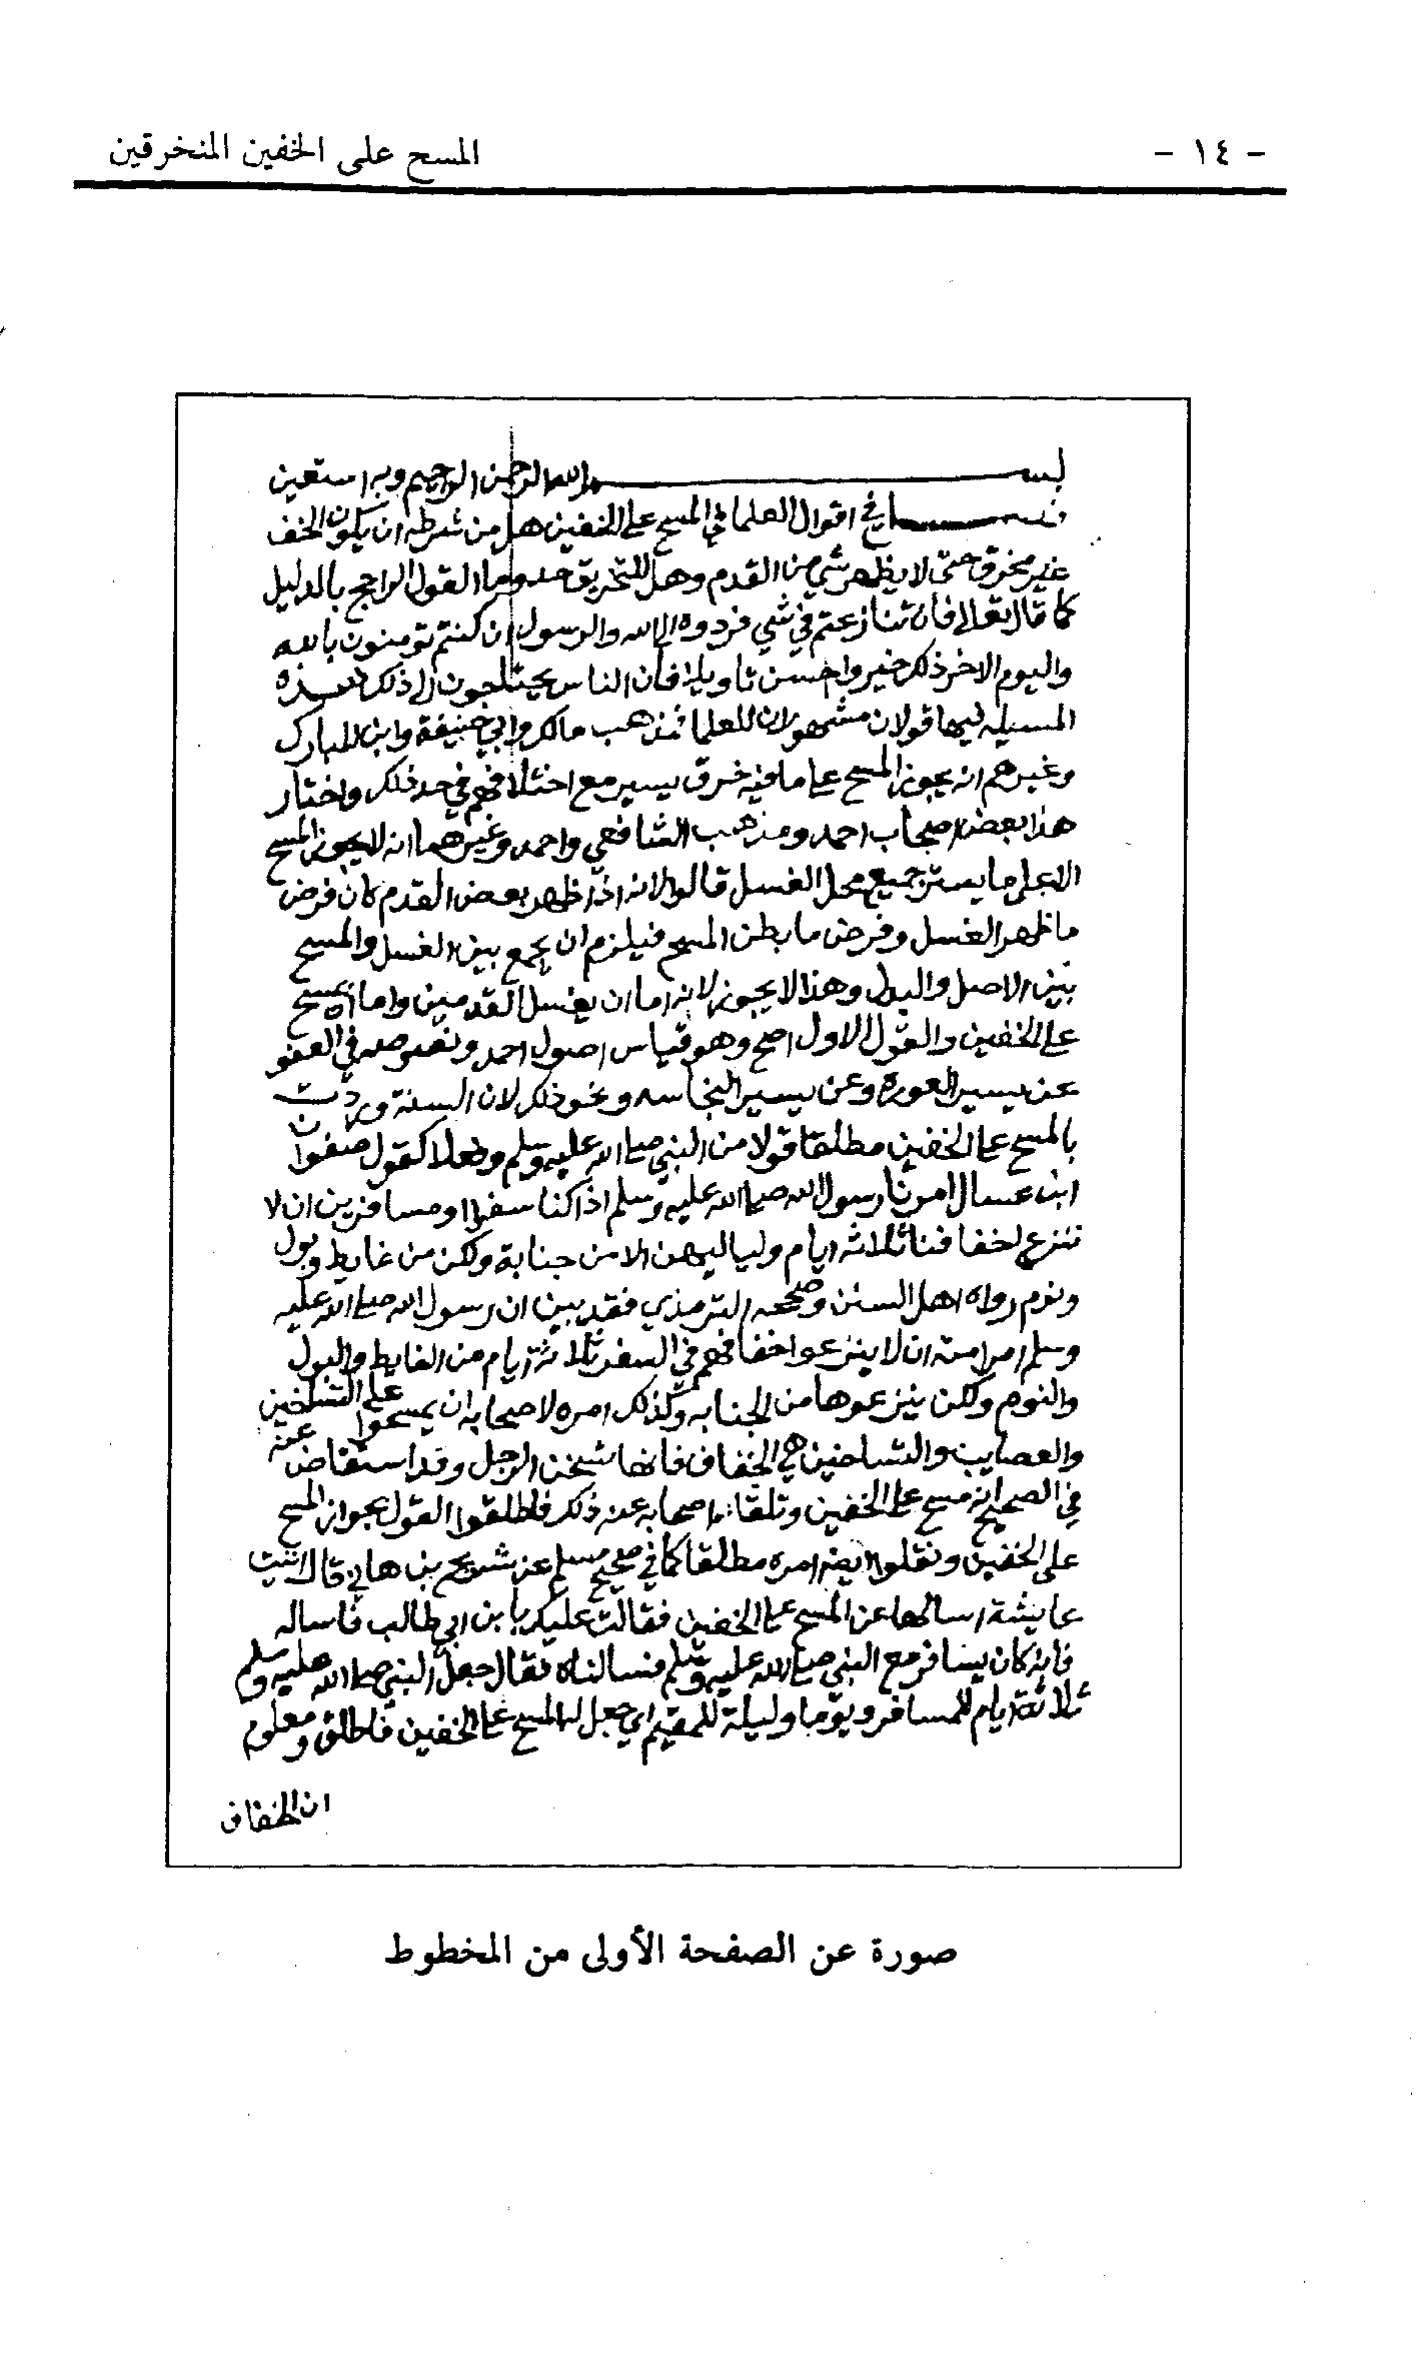 - ١٤ - المسح على الخفين المنخرقين
بسم الله الرحمن الرحيم وبه استعين
في اقوال العلما في المسح على الخفين هل من شرطه ان يكون الخف
غير مخرق حتى لا يظهر شي من القدم وهل للتخريق حد وما القول الراجح بالدليل
كما قال تعالى فان تنازعتم في شي فردوه الى الله والرسول ان كنتم تومنون بالله
واليوم الاخر ذلك خير واحسن تاويلا فان الناس يحتاجون الى ذلك هذه
المسيله فيها قولان مشهوران للعلما فمذهب مالك وابي حنيفة وابن المبارك
وغيرهم انه يجوز المسح على ما فيه خرق يسير مع اختلافهم في حد ذلك واختار
هذا بعض اصحاب احمد ومذهب الشافعي واحمد وغيرهما انه لا يجوز المسح
الا على ما يستر جميع محل الغسل قالوا لانه اذا ظهر بعض القدم كان فرض
ما ظهر الغسل وفرض ما بطن المسح فيلزم ان يجمع بين الغسل والمسح
بين الاصل والبدل وهذا لا يجوز لانه اما ان يغسل القدمين واما ان يمسح
على الخفين والقول الاول اصح وهو قياس اصول احمد ونصوصه في العفو
عن يسير العورة وعن يسير النجاسه ونحو ذلك لان السنة وردت
بالمسح على الخفين مطلقا قولا من النبي صلى الله عليه وسلم وفعلا كقول صفوان
ابن عسال امرنا رسول الله صلى الله عليه وسلم اذا كنا سفرا او مسافرين ان لا
ننزع اخفافنا ثلاثه ايام ولياليهن الا من جنابة ولكن من غايط وبول
ونوم رواه اهل السنن وصححه الترمذي فقد بين ان رسول الله صلى الله عليه
وسلم امر امته ان لا ينزعوا اخفافهم في السفر ثلاثة ايام من الغايط والبول
والنوم ولكن ينزعوها من الجنابه وكذلك امره لاصحابه ان يمسحوا على التساخين
والعصايب والتساخين هي الخفاف فانها تسخن الرجل وقد استفاض عنه
في الصحيح انه مسح على الخفين وتلقا اصحابه عنه ذلك فاطلقوا القول بجواز المسح
على الخفين ونقلوا ايضا امره مطلقا كما في صحيح مسلم عن شريح بن هاني قال اتيت
عايشة اسالها عن المسح على الخفين فقالت عليك بابن ابي طالب فاساله
فانه كان يسافر مع النبي صلى الله عليه وسلم فسالناه فقال جعل النبي صلى الله عليه وسلم
ثلاثة ايام للمسافر ويوما وليلة للمقيم اي جعل له المسح على الخفين فاطلق ومعلوم
ان الخفاف
صورة عن الصفحة الأولى من المخطوط